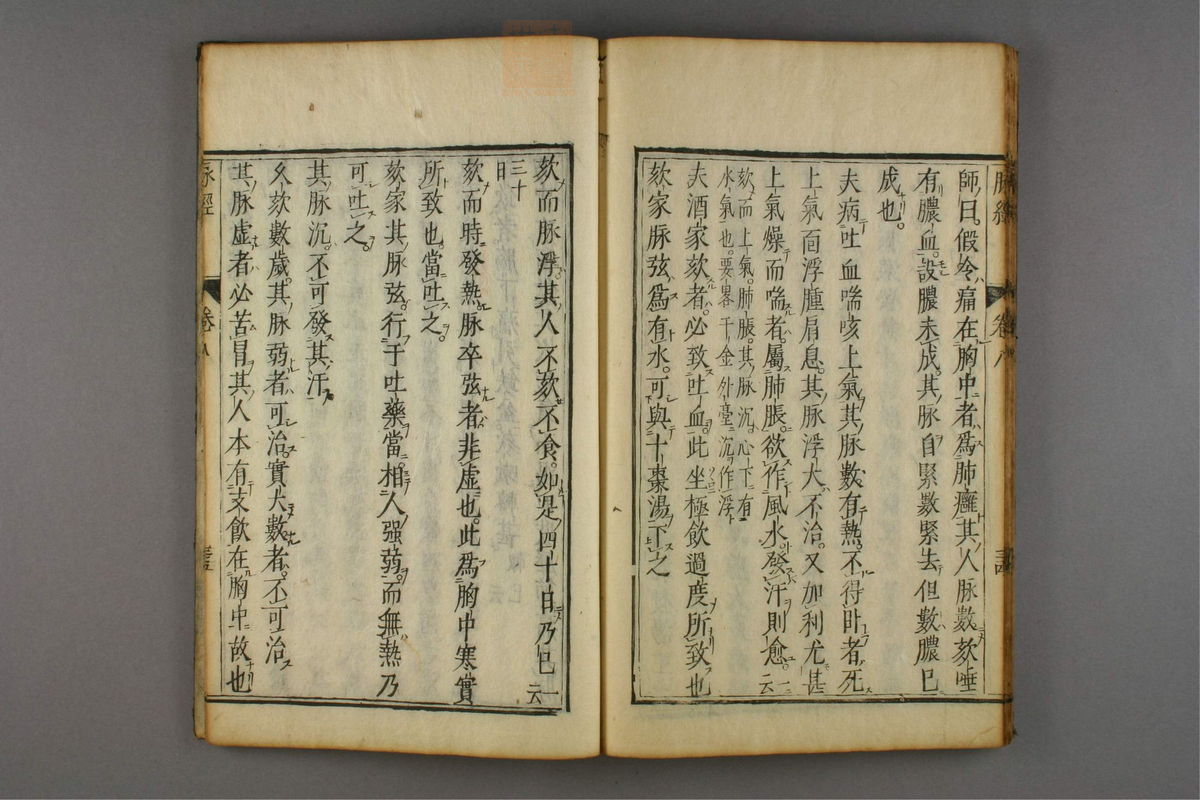 師曰假令痛在胸中者爲肺癰其人脉數欬唾
有膿血設膿未成其脉自緊數緊去但數膿已
成也
夫病吐血喘咳上氣其脉數有熱不得卧者死
上氣面浮腫肩息其脉浮大不治又加利尤甚
上氣燥而喘者屬肺脹欲作風水發汗則愈一云
欬而上氣肺脹其脉沉心下有
水氣也要畧千金外臺沉作浮
夫酒家欬者必致吐血此坐極飲過度所致也
欬家脉弦爲有水可與十棗湯下之
欬而脉浮其人不欬不食如是四十日乃已一云
三十
日
欬而時發熱脉卒弦者非虛也此爲胸中寒實
所致也當吐之
欬家其脉弦行于吐藥當相人强弱而無熱乃
可吐之
其脉沉不可發其汗
久欬數歲其脉弱者可治實大數者不可治
其脉虛者必苦冒其人本有支飲在胸中故也
脉經
卷八